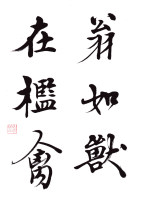 翁如獸
在檻禽